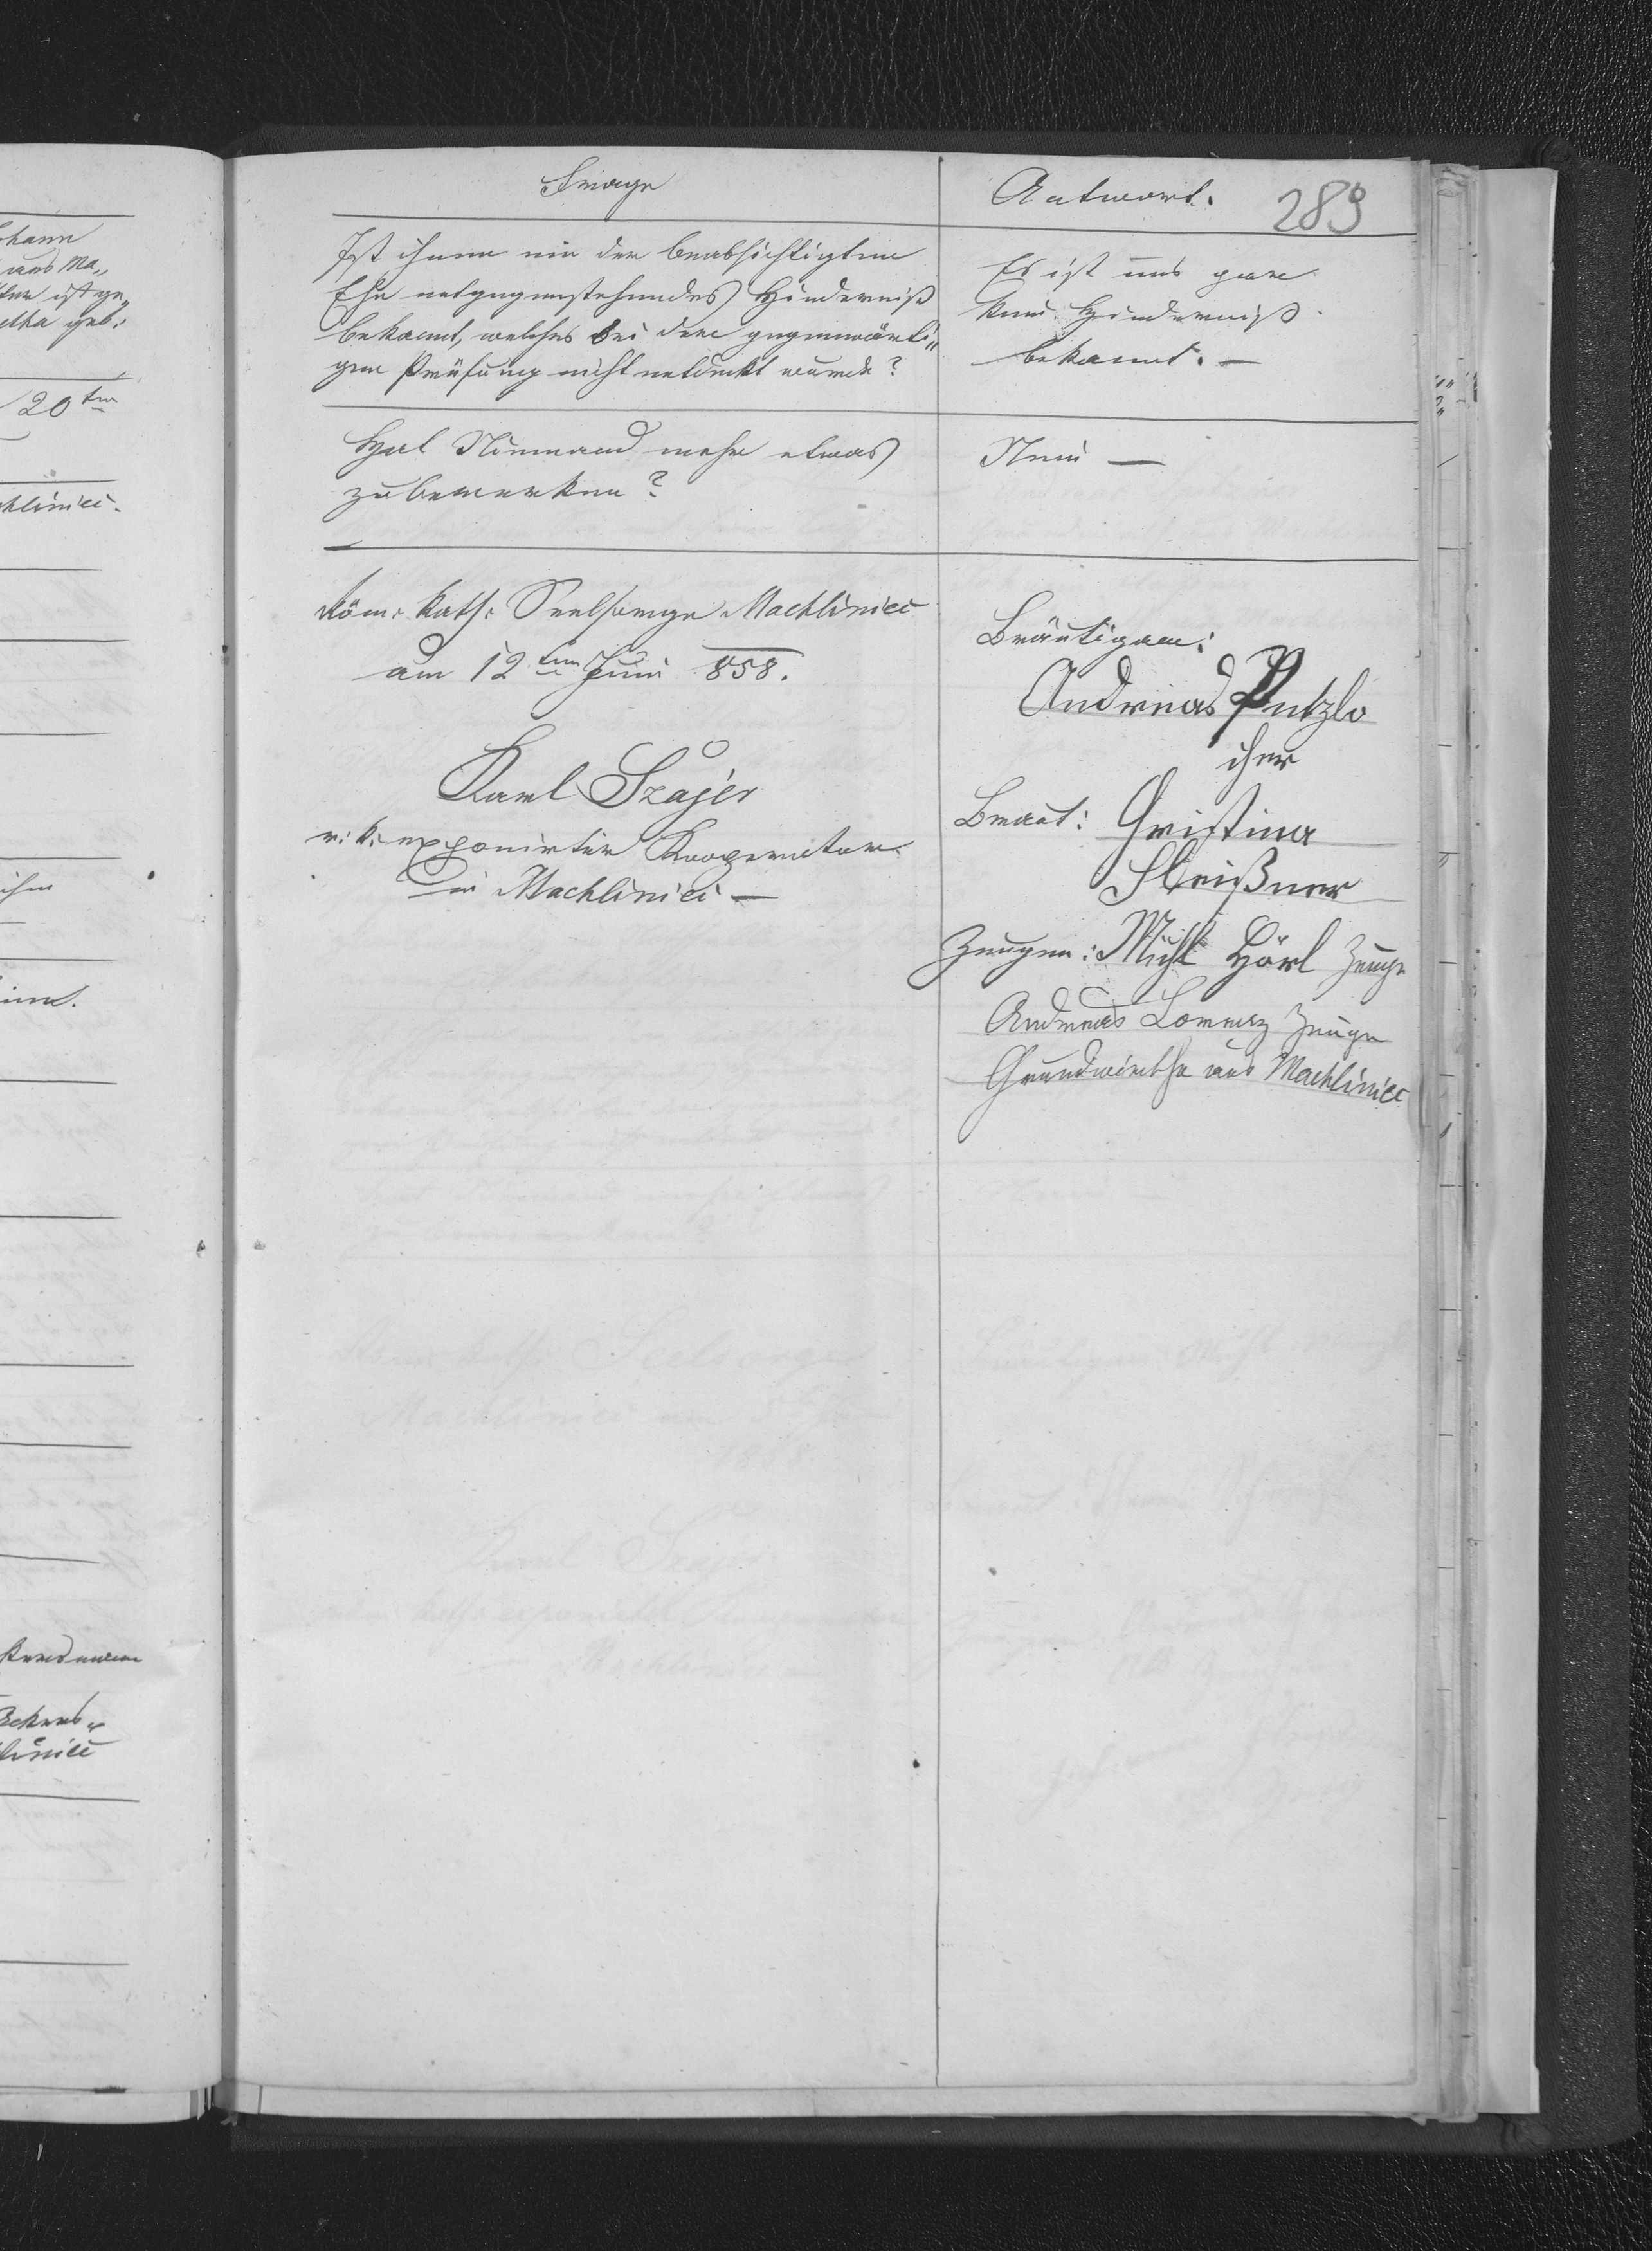 Frage
Antwort.
289
Ist ihnen ein der beabsichtigten
Ehe entgegenstehendes Hinderniß
bekannt, welches bei der gegenwärti„
gen Prüfung nicht entdeckt wurde?
Es ist uns gar
kein Hinderniß
bekannt. —
Hat Niemand mehr etwas
zu bemerken?
Nein —
Röm: kath: Seelsorge Machliniec
am 12ten Juni 858.
Karl Szajer
r: k: exponirter Kooperator
in Machliniec —
Bräutigam:
Andreas Putzlo
cher
Braut: Christina
Fleißner
Zeugen: Michl Hörl Zeuge
Andreas Lorenz Zeuge
Grundwirthe aus Machliniec
ohann
aus Ma„
ist ge„
etha geb:
20ten
chliniec.
liniec